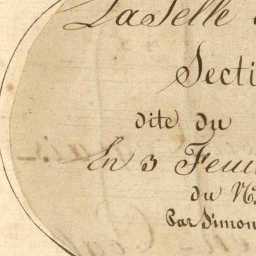 LaSelle
Secti
dite du
En 3 Feuil
du N
Par Simon